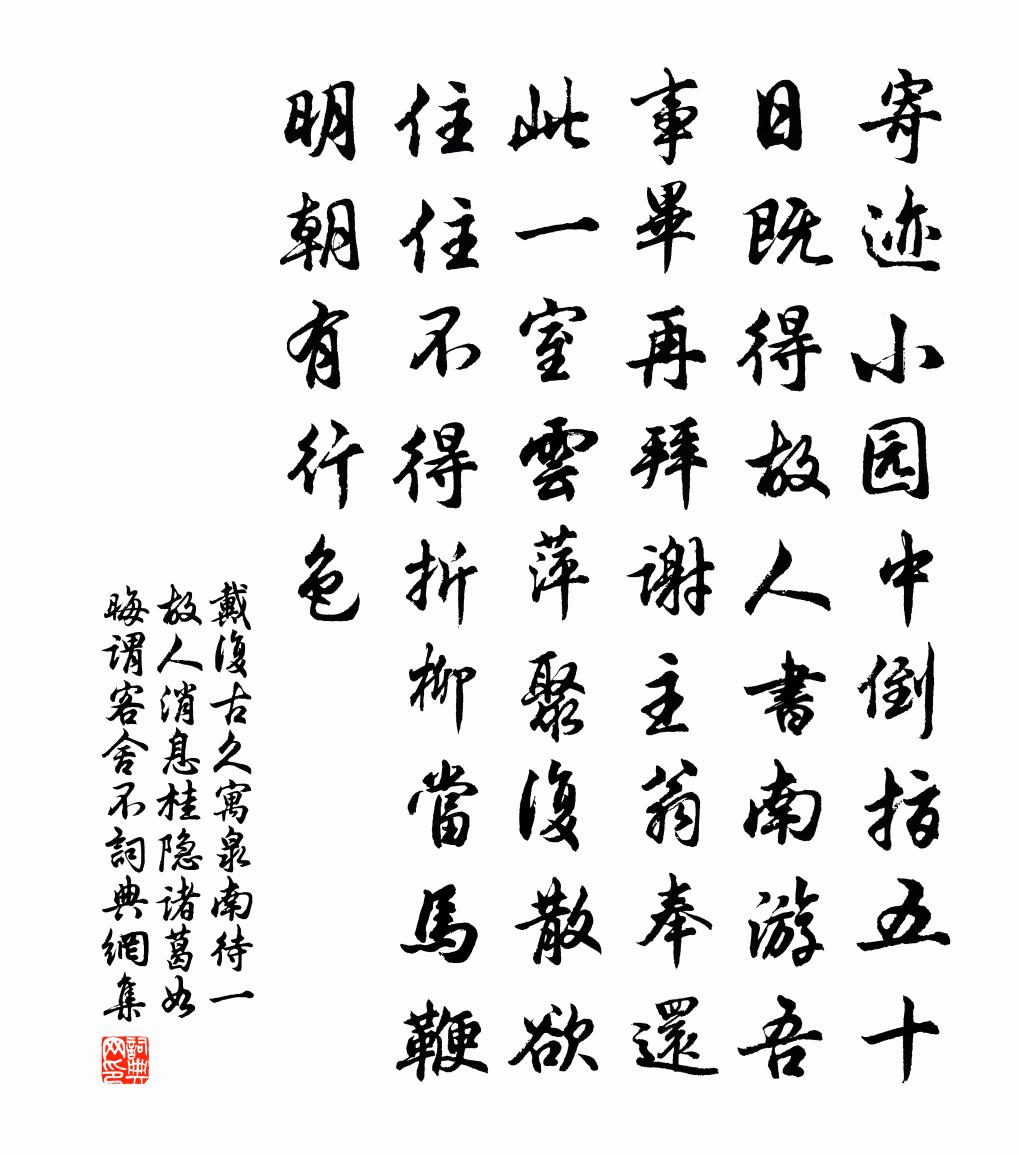 寄迹小园中倒指五十
日既得故人書南游吾
事畢再拜謝主翁奉還
此一室雲萍聚復散欲
住住不得折柳當馬鞭
明朝有行色
戴復古久寓泉南待一
故人消息桂隐诸葛如
晦谓客舍不詞典網集
詞典网印